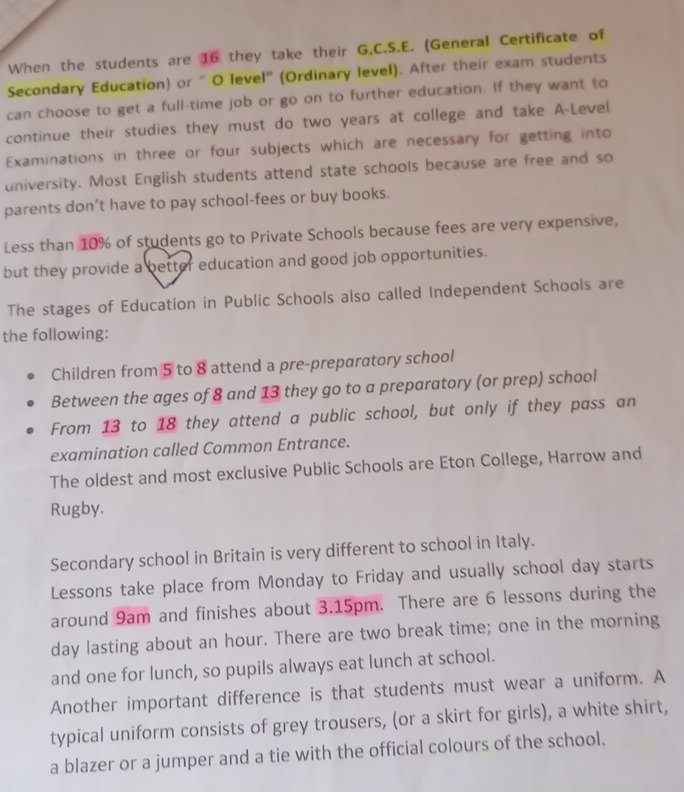 When the students are 16 they take their G.C.S.E. (General Certificate of
Secondary Education) or " O level" (Ordinary level). After their exam students
can choose to get a full-time job or go on to further education. If they want to
continue their studies they must do two years at college and take A-Level
Examinations in three or four subjects which are necessary for getting into
university. Most English students attend state schools because are free and so
parents don't have to pay school-fees or buy books.
Less than 10% of students go to Private Schools because fees are very expensive,
but they provide a better education and good job opportunities.
The stages of Education in Public Schools also called Independent Schools are
the following:
• Children from 5 to 8 attend a pre-preparatory school
• Between the ages of 8 and 13 they go to a preparatory (or prep) school
• From 13 to 18 they attend a public school, but only if they pass an
examination called Common Entrance.
The oldest and most exclusive Public Schools are Eton College, Harrow and
Rugby.
Secondary school in Britain is very different to school in Italy.
Lessons take place from Monday to Friday and usually school day starts
around 9am and finishes about 3.15pm. There are 6 lessons during the
day lasting about an hour. There are two break time; one in the morning
and one for lunch, so pupils always eat lunch at school.
Another important difference is that students must wear a uniform. A
typical uniform consists of grey trousers, (or a skirt for girls), a white shirt,
a blazer or a jumper and a tie with the official colours of the school.